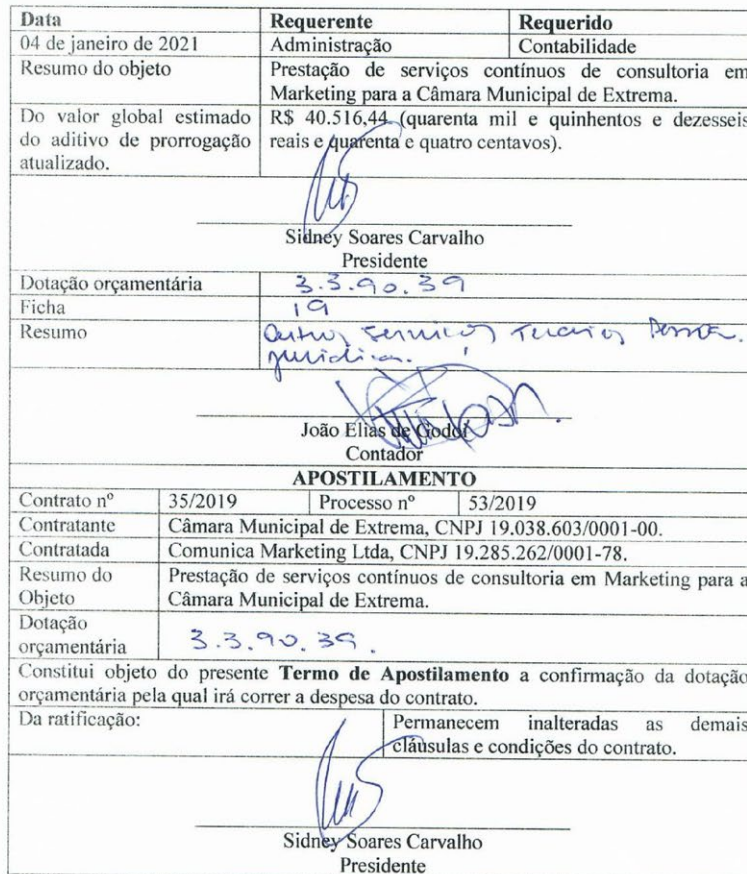 Data Requerente Requerido
04 de janeiro de 2021 Administração Contabilidade
Resumo do objeto Prestação de serviços contínuos de consultoria em
Marketing para a Câmara Municipal de Extrema.
Do valor global estimado R$ 40.516,44 (quarenta mil e quinhentos e dezesseis
do aditivo de prorrogação reais e quarenta e quatro centavos).
atualizado.
Sidney Soares Carvalho
Presidente
Dotação orçamentária 3.3.90.39
Ficha 19
Resumo Outros Serviços Terceiros Pessoa
jurídica.
João Elias de Godoi
Contador
APOSTILAMENTO
Contrato nº 35/2019 Processo nº 53/2019
Contratante Câmara Municipal de Extrema, CNPJ 19.038.603/0001-00.
Contratada Comunica Marketing Ltda, CNPJ 19.285.262/0001-78.
Resumo do Prestação de serviços contínuos de consultoria em Marketing para a
Objeto Câmara Municipal de Extrema.
Dotação
orçamentária 3.3.90.39.
Constitui objeto do presente Termo de Apostilamento a confirmação da dotação
orçamentária pela qual irá correr a despesa do contrato.
Da ratificação: Permanecem inalteradas as demais
cláusulas e condições do contrato.
Sidney Soares Carvalho
Presidente